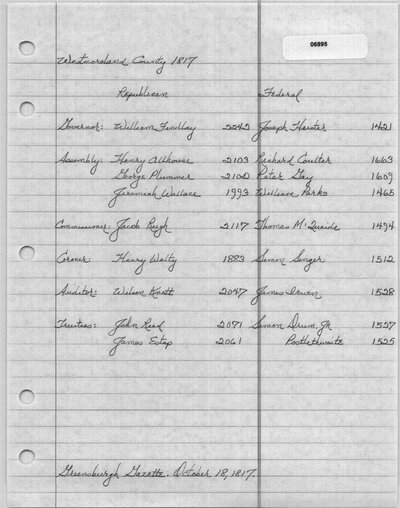 06895
Westmoreland County 1817
Republican Federal
Governor: William Findlay 2242 Joseph Heister 1421
Assembly: Henry Allhouse 2103 Richard Coulter 1663
George Plummer 2100 Peter Gay 1609
Jeremiah Wallace 1993 William Parks 1465
Commissioner: Jacob Rugh 2117 Thomas M'Quaide 1494
Coroner: Henry Welty 1883 Simon Singer 1512
Auditor: Wilson Knott 2047 James Irwin 1528
Trustees: John Reed 2071 Simon Drum, Jr. 1527
James Estep 2061 Postlethwaite 1525
Greensburgh Gazette. October 18, 1817.